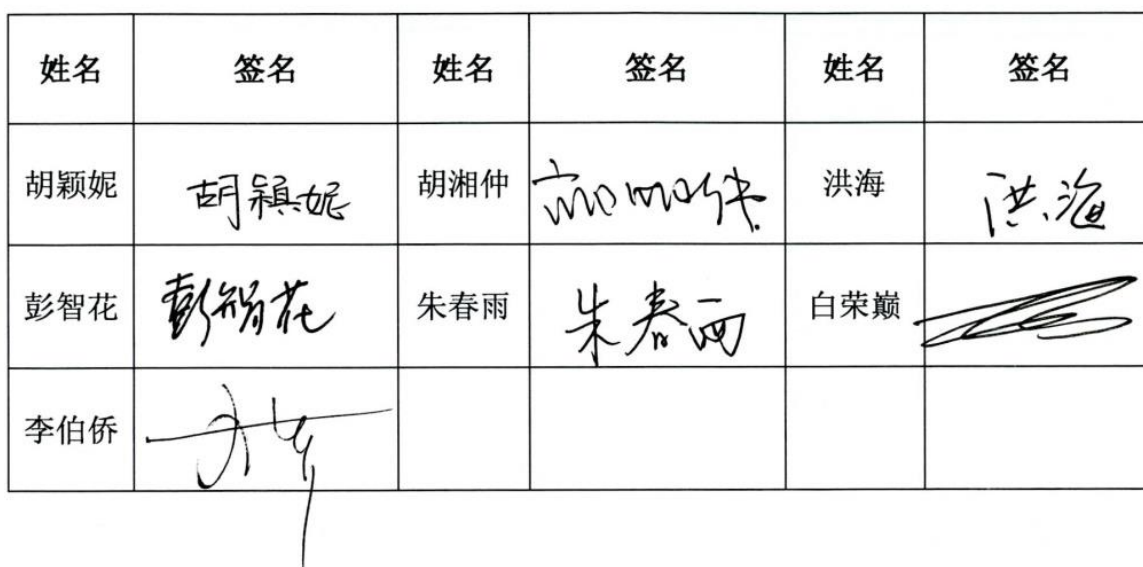 姓名 签名 姓名 签名 姓名 签名
胡颖妮 胡颖妮 胡湘仲 洪海 洪海
彭智花 彭智花 朱春雨 朱春雨 白荣巅
李伯侨